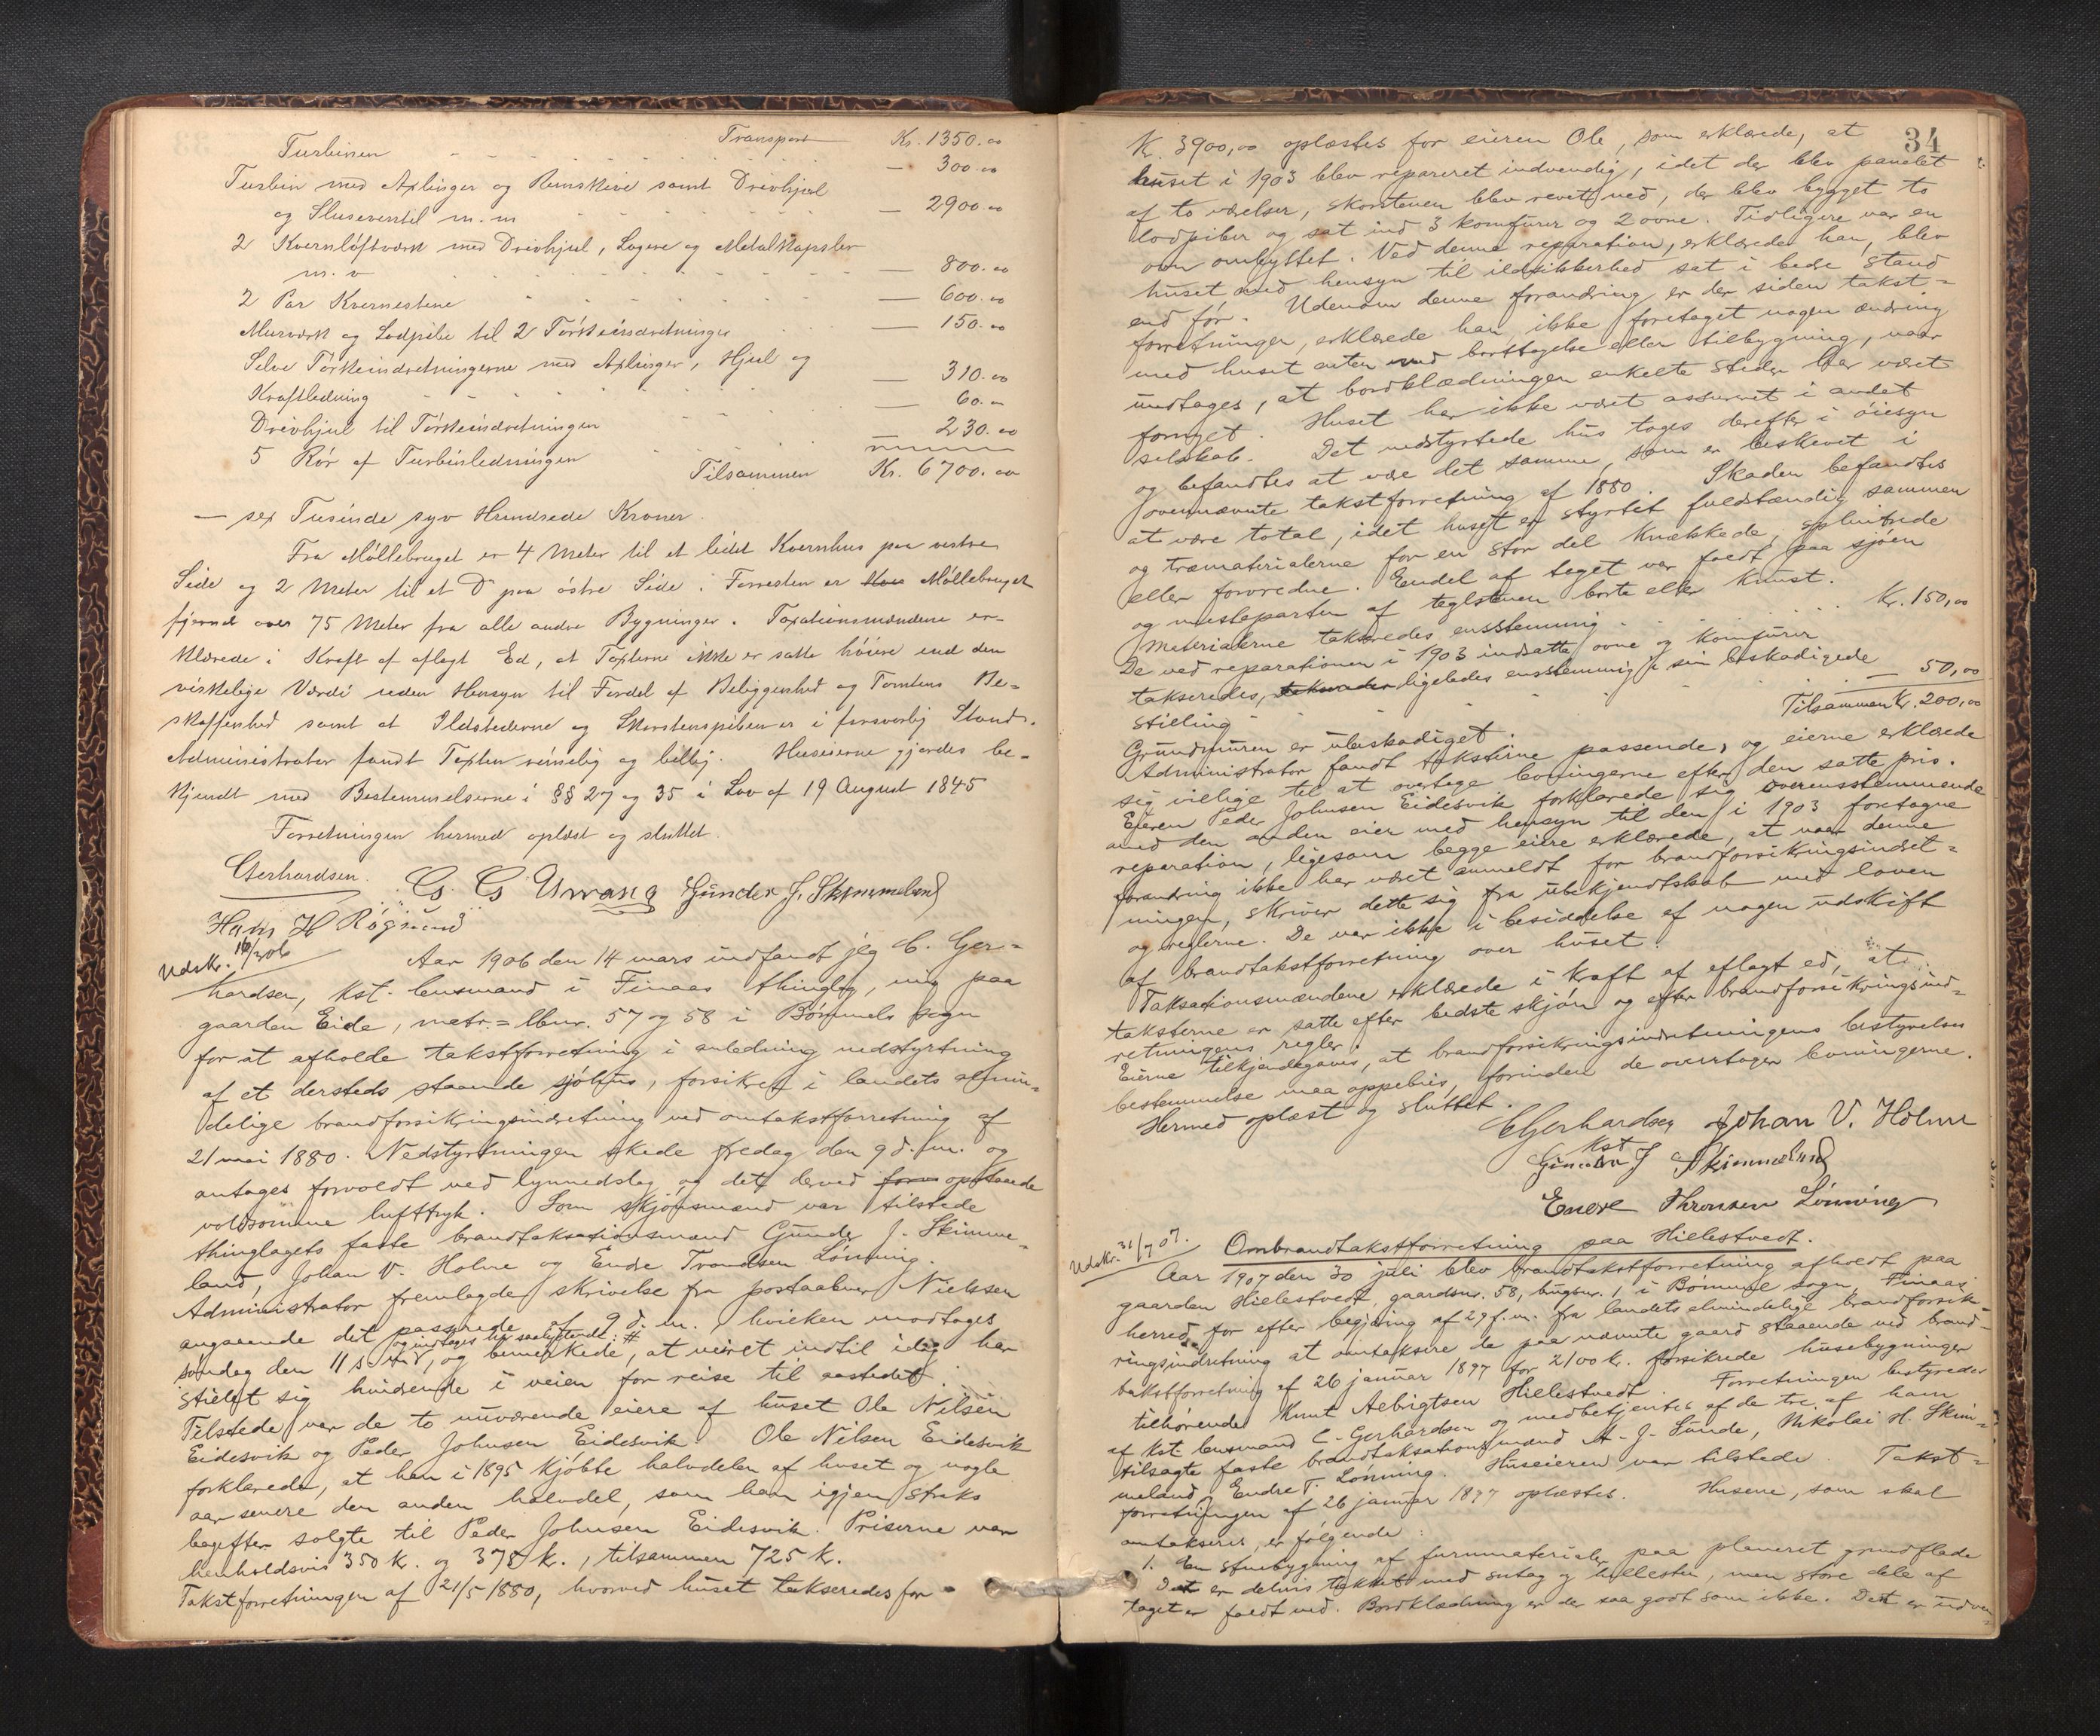 Transport Kr. 1350.00
Turbinen — 300.00
Turbin med Axlinger og Remskive samt Drivhjul
og Sluseventil m.m — 2900.00
2 Kvernløftværk med Drivhjul, Lagere og Metalkapsler
m. v — 800.00
2 Par Kvernestene — 600.00
Murværk og Lodpibe til 2 Tørkeindretninger — 150.00
Selve Tørkeindretningerne med Axlinger, Hjul og
Kraftledning — 310.00
Drivhjul til Tørkeindretningen — 60.00
5 Rør af Turbinledningen — 230.00
Tilsammen Kr. 6700.00
— sex Tusinde syv Hundrede Kroner.
Fra Møllebruget er 4 Meter til et lidet Kvernhus paa vestre
Side og 2 Meter til et Do paa østre Side. Forresten er Møllebruget
fjernet over 75 Meter fra alle andre Bygninger. Taxationsmændene er-
klærede i Kraft af aflagt Ed, at Taxterne ikke er satte høiere end den
virkelige Værdi uden Hensyn til Fordel af Beliggenhed og Tomtens Be-
skaffenhed samt at Ildstederne og Skorstenspiben er i forsvarlig Stand.
Administrator fandt Taxten rimelig og billig. Huseierne gjordes be-
kjendt med Bestemmelserne i §§ 27 og 35 i Lov af 19 August 1845
Forretningen hermed oplæst og sluttet.
Gerhardsen. G. G. Urvang Gunder J. Skimmeland
Hans H Røgsund
Udskr. 16/3 06
Aar 1906 den 14 mars indfandt jeg C. Ger=
hardsen, kst. lensmand i Finaas thinglag, mig paa
gaarden Eide, matr.=lbnr. 57 og 58 i Bømmels sogn
for at afholde takstforretning i anledning nedstyrtning
af et dersteds staaende sjøhus, forsikret i landets almin=
delige brandforsikringsindretning ved omtakstforretning af
21 mai 1880. Nedstyrtningen skede fredag den 9 d. m. og
antages forvoldt ved lynnedslag og det derved opstaaede
voldsomme lufttryk. Som skjønsmænd var tilstede
thinglagets faste brandtaksationsmænd Gunder J. Skimme=
land, Johan V. Holme og Endre Trondsen Lønning.
Administrator fremlagde skrivelse fra postaabner Nielssen
angaaende det passerede af 9 d. m. hvilken modtoges
og indtages her saalydende: #
søndag den 11 s. md, og bemerkede, at veiret indtil idag har
stillet sig hindrende i veien for reise til aastedet.
Tilstede var de to nuværende eiere af huset Ole Nilsen
Eidesvik og Peder Johnsen Eidesvik. Ole Nilsen Eidesvik
forklarede, at han i 1895 kjøbte halvdelen af huset og nogle
aar senere den anden halvdel, som han igjen straks
bagefter solgte til Peder Johnsen Eidesvik. Priserne var
henholdsvis 350 kr. og 375 kr., tilsammen 725 kr.
Takstforretningen af 21/5 1880, hvorved huset takseredes for
34
Kr. 3900,00 oplæstes for eieren Ole, som erklærede, at
huset i 1903 blev repareret indvendig, idet der blev panelet
af to værelser, skorstenen blev revet ned, der blev bygget to
lodpiber og sat ind 3 komfurer og 2 ovne. Tidligere var en
ovn ombyttet. Ved denne reparation, erklærede han, blev
huset med hensyn til ildsikkerhed sat i bedre stand
end før. Udenom denne forandring er der siden takst=
forretningen, erklærede han, ikke foretaget nogen ændring
med huset enten ved borttagelse eller tilbygning, naar
undtages, at bordklædningen enkelte steder har været
fornyet. Huset har ikke været assureret i andet
selskab. Det nedstyrtede hus toges derefter i øiesyn
og befandtes at være det samme, som er beskrevet i
ovennævnte takstforretning af 1880. Skaden befandtes
at være total, idet huset er styrtet fuldstændig sammen
og træmaterialerne for en stor del knækkede, splintrede
eller forvredne. Endel af taget var faldt paa sjøen
og mesteparten af teglstenen borte eller knust.
Materialerne takseredes enstemmig Kr. 150,00
De ved reparationen i 1903 indsatte ovne og komfurer
takseredes, ligeledes enstemmig i sin beskadigede
stilling — 50,00
Tilsammen Kr. 200,00
Grundmuren er ubeskadiget.
Administrator fandt taksterne passende, og eierne erklærede
sig villige til at overtage levningerne efter den satte pris.
Eieren Peder Johnsen Eidesvik forklarede sig overensstemmende
med den anden eier med hensyn til den i 1903 foretagne
reparation, ligesom begge eiere erklærede, at naar denne
forandring ikke har været anmeldt for brandforsikringsindret=
ningen, skriver dette sig fra ubekjendtskab med loven
og reglerne. De var ikke i besiddelse af nogen udskrift
af brandtakstforretning over huset.
Taksationsmændene erklærede i kraft af aflagt ed, at
taksterne er satte efter bedste skjøn og efter brandforsikringsind=
retningens regler.
Eierne tilkjendegaves, at brandforsikringsindretningens bestyrelses
bestemmelse maa oppebies, forinden de overtager levningerne.
Hermed oplæst og sluttet.
CGerhardsen Johan V. Holme
kst
Gunder J Skimmeland
Endre Thronsen Lønning
Udskr. 31/7 07.
Ombrandtakstforretning paa Hillestvedt.
Aar 1907 den 30 juli blev brandtakstforretning afholdt paa
gaarden Hillestvedt, gaardsnr. 58, brugsnr. 1 i Bømmel sogn, Finaas
herred for efter begjæring af 29 f. m. fra landets almindelige brandforsik=
ringsindretning at omtaksere de paa nævnte gaard staaende ved brand=
takstforretning af 26 januar 1897 for 2100 kr. forsikrede husebygninger
tilhørende Knut Aebrigtsen Hillestvedt. Forretningen bestyredes
af kst. lensmand C. Gerhardsen og medbetjentes af de tre af ham
tilsagte faste brandtaksationsmænd A. J. Sunde, Nikolai H. Skim=
meland, Endre T. Lønning. Huseieren var tilstede. Takst=
forretningen af 26 januar 1897 oplæstes. Husene, som skal
omtakseres, er følgende:
1. En stuebygning af furumaterialer paa planeret grundflade
Det er delvis tækket med sutag og hellesten, men store dele af
taget er faldt ned. Bordklædning er der saa godt som ikke. Det er indven=